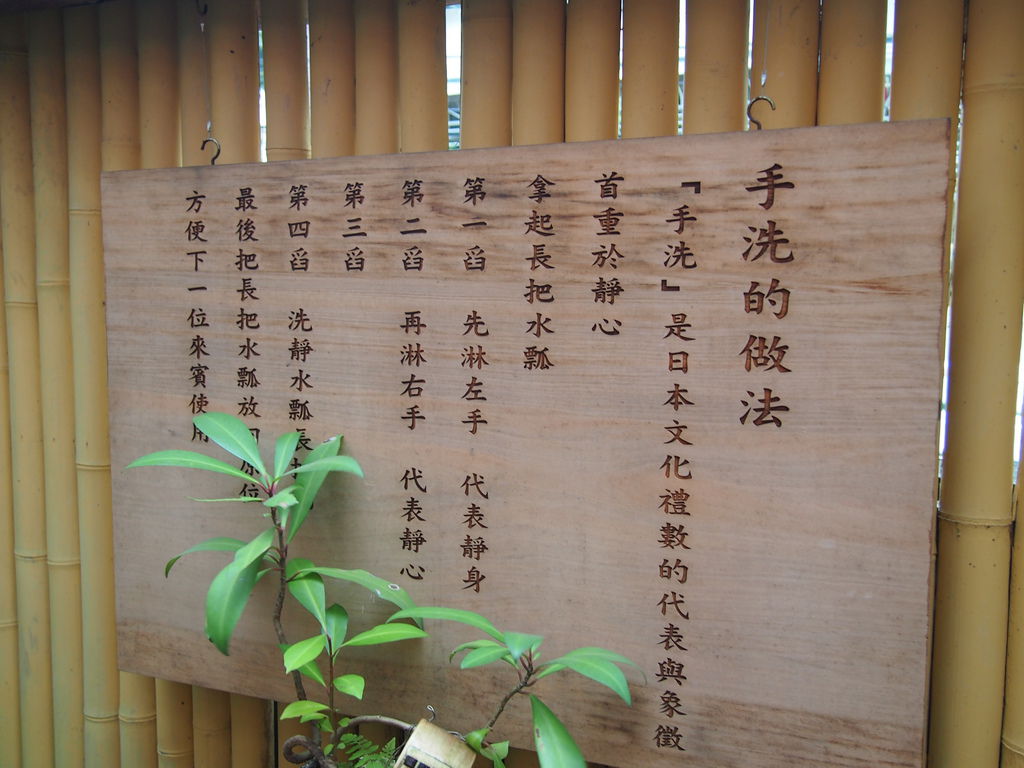 手洗的做法
「手洗」是日本文化禮數的代表與象徵
首重於靜心
拿起長把水瓢
第一舀 先淋左手 代表靜身
第二舀 再淋右手 代表靜心
第三舀
第四舀 洗靜水瓢長
最後把長把水瓢放回原位
方便下一位來賓使用